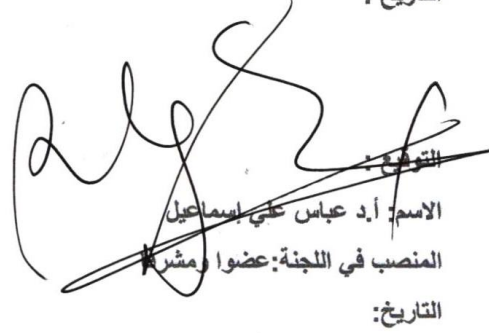 التاريخ :
التوقيع :
الاسم: أ.د عباس علي إسماعيل
المنصب في اللجنة:عضوا ومشرفا
التاريخ: